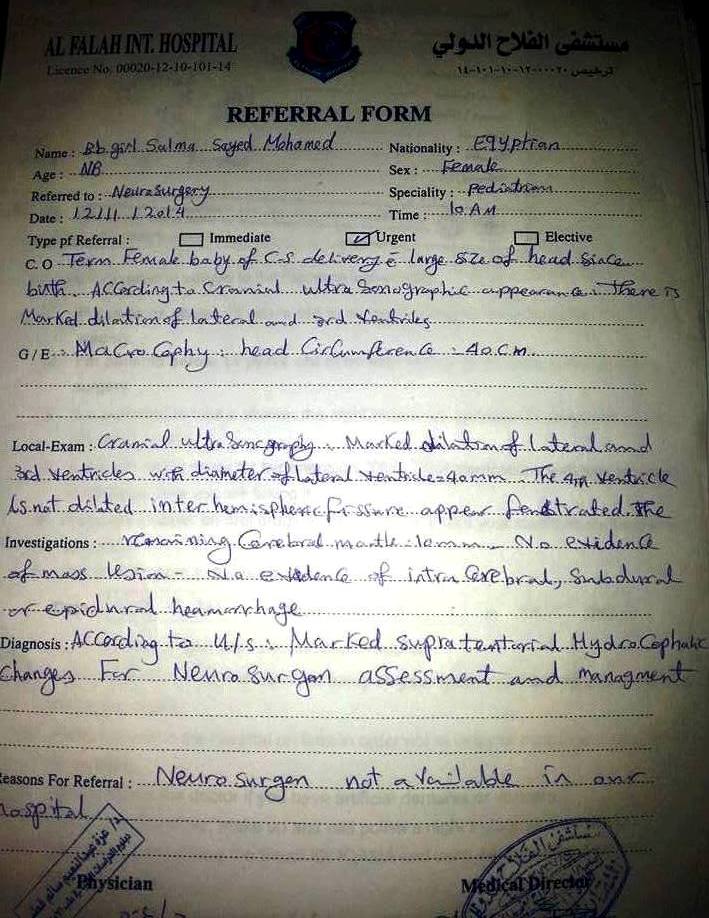 AL FALAH INT. HOSPITAL
مستشفى الفلاح الدولي
Licence No. 00020-12-10-101-14
ترخيص ٠٠٠٢٠-١٢-١٠-١٠١-١٤
REFERRAL FORM
Name : Bb.girl Salma Sayed Mohamed
Nationality : Egyptian
Age : NB
Sex : Female
Referred to : Neurosurgery
Speciality : Pediatrician
Date : 12/11/2014
Time : 10 AM
Type pf Referral : Immediate Urgent Elective
C.O Term Female baby of C.S delivery c̄ large size of head since
birth. ACCording to Cranial ultra Sonographic appearance : There is
Marked dilation of lateral and 3rd Ventricles
G/E : MaCro Cephy : head CirCumference = 40 C.m
Local-Exam : Cranial ultra Sonography : Marked dilation of lateral and
3rd Ventricles with diameter of lateral Ventricle = 40 mm. The 4th Ventricle
is not dilated interhemispheric Fissure appear fenstrated. The
Investigations : remaining Cerebral mantle 10mm. No evidence
of mass lesion - No evidence of intra Cerebral, Subdural
or epidural heamorrhage
Diagnosis : ACCording to U/S : Marked supratentorial HydroCephalic
Changes For Neurosurgon assessment and managment
Reasons For Referral : Neurosurgen not available in our
hospital
Physician
Medical Director